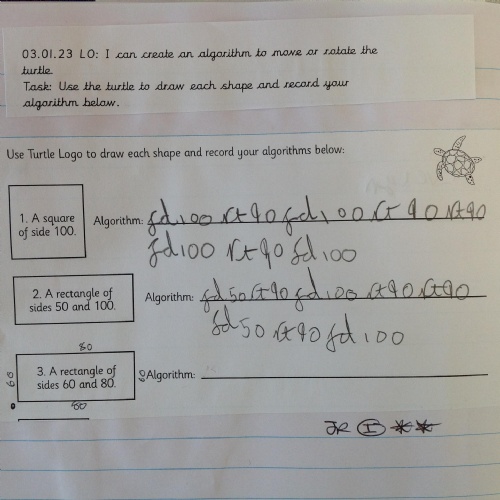 03.01.23 LO: I can create an algorithm to move or rotate the
turtle.
Task: Use the turtle to draw each shape and record your
algorithm below.
Use Turtle Logo to draw each shape and record your algorithms below:
1. A square
of side 100.
Algorithm: fd 100 rt 90 fd 100 rt 90 rt 90
fd 100 rt 90 fd 100
2. A rectangle of
sides 50 and 100.
Algorithm: fd 50 rt 90 fd 100 rt 90 rt 90
fd 50 rt 90 fd 100
80
60
3. A rectangle of
sides 60 and 80.
60
Algorithm:
80
JR I